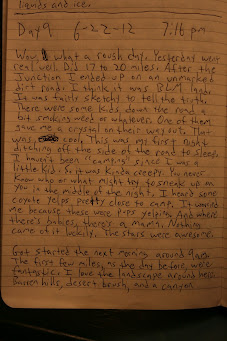 liquids and ice.
Day 9 6-22-12 7:16 pm
Wow, what a rough day. Yesterday went
real well. Did 17 to 20 miles. After the
Junction I ended up on an unmarked
dirt road. I think it was BLM land.
It was fairly sketchy to tell the truth.
There were some kids down the road a
bit smoking weed or whatever. One of them
gave me a crystal on their way out. That
was cool. This was my first night
ditching off the side of the road to sleep.
I haven't been "camping" since I was a
little kid. So it was kinda creepy. You never
know who or what might try to sneak up on
you in the middle of the night. I heard some
coyote yelps pretty close to camp. It worried
me because these were pups yelping. And where
there's babies, there's a mama. Nothing
came of it luckily. The stars were awesome.
Got started the next morning around 9 am.
The first few miles, as the day before, were
fantastic. I love the landscape around here.
Barren hills, dessert brush, and a canyon